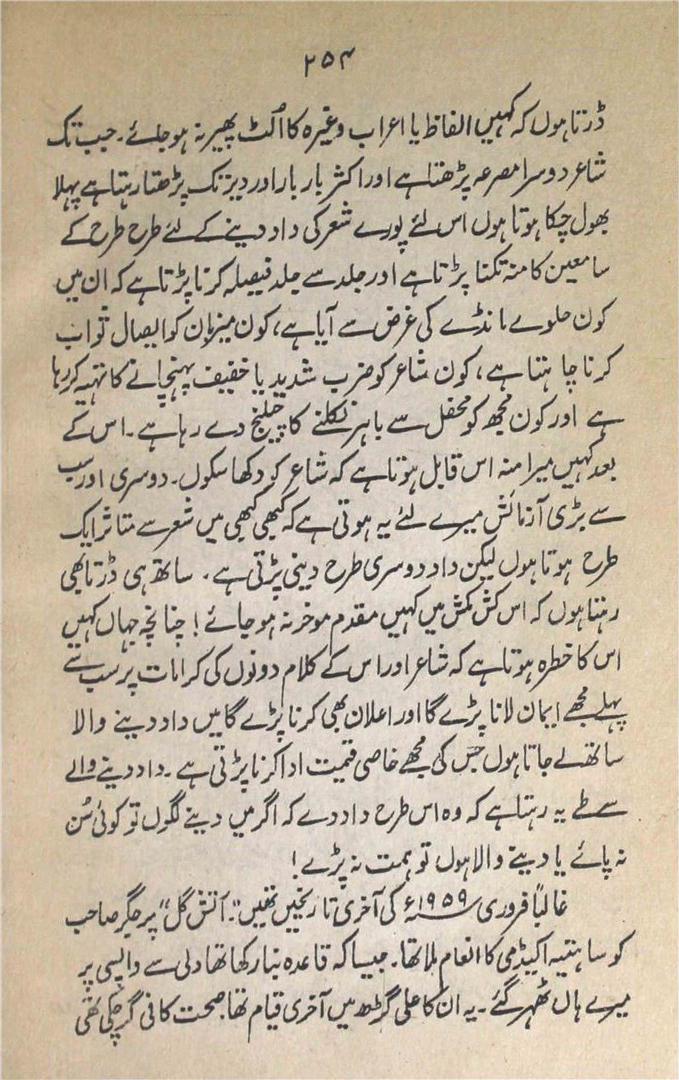 ۲۵۴
ڈرتا ہوں کہ کہیں الفاظ یا اعراب وغیرہ کا اُلٹ پھیر نہ ہو جائے۔ جب تک
شاعر دوسرا مصرعہ پڑھتا ہے اور اکثر بار بار اور دیر تک پڑھتا رہتا ہے پہلا
بھول چکا ہوتا ہوں اس لئے پورے شعر کی داد دینے کے لئے طرح طرح کے
سامعین کا منہ تکنا پڑتا ہے اور جلد سے جلد فیصلہ کرنا پڑتا ہے کہ ان میں
کون حلوے مانڈے کی غرض سے آیا ہے، کون میزبان کو ایصال ثواب
کرنا چاہتا ہے، کون شاعر کو ضرب شدید یا خفیف پہنچانے کا تہیہ کر رہا
ہے اور کون مجھ کو محفل سے باہر نکلنے کا چیلنج دے رہا ہے۔ اس کے
بعد کہیں میرا منہ اس قابل ہوتا ہے کہ شاعر کو دکھا سکوں۔ دوسری اور سب
سے بڑی آزمائش میرے لئے یہ ہوتی ہے کہ کبھی کبھی میں شعر سے متاثر ایک
طرح ہوتا ہوں لیکن داد دوسری طرح دینی پڑتی ہے۔ ساتھ ہی ڈرتا بھی
رہتا ہوں کہ اس کش مکش میں کہیں مقدم موخر نہ ہو جائے! چنانچہ جہاں کہیں
اس کا خطرہ ہوتا ہے کہ شاعر اور اس کے کلام دونوں کی کرامات پر سب سے
پہلے مجھے ایمان لانا پڑے گا اور اعلان بھی کرنا پڑے گا میں داد دینے والا
ساتھ لے جاتا ہوں جس کی مجھے خاصی قیمت ادا کرنا پڑتی ہے۔ داد دینے والے
سے طے یہ رہتا ہے کہ وہ اس طرح داد دے کہ اگر میں دینے لگوں تو کوئی سُن
نہ پائے یا دینے والا ہوں تو ہمت نہ پڑے!
غالباً فروری ۱۹۵۹ء کی آخری تاریخیں تھیں۔ "آتش گل" پر جگر صاحب
کو ساہتیہ اکیڈمی کا انعام ملا تھا۔ جیسا کہ قاعدہ بنا رکھا تھا دلی سے واپسی پر
میرے ہاں ٹھہر گئے۔ یہ ان کا علی گڑھ میں آخری قیام تھا۔ صحت کافی گر چکی تھی